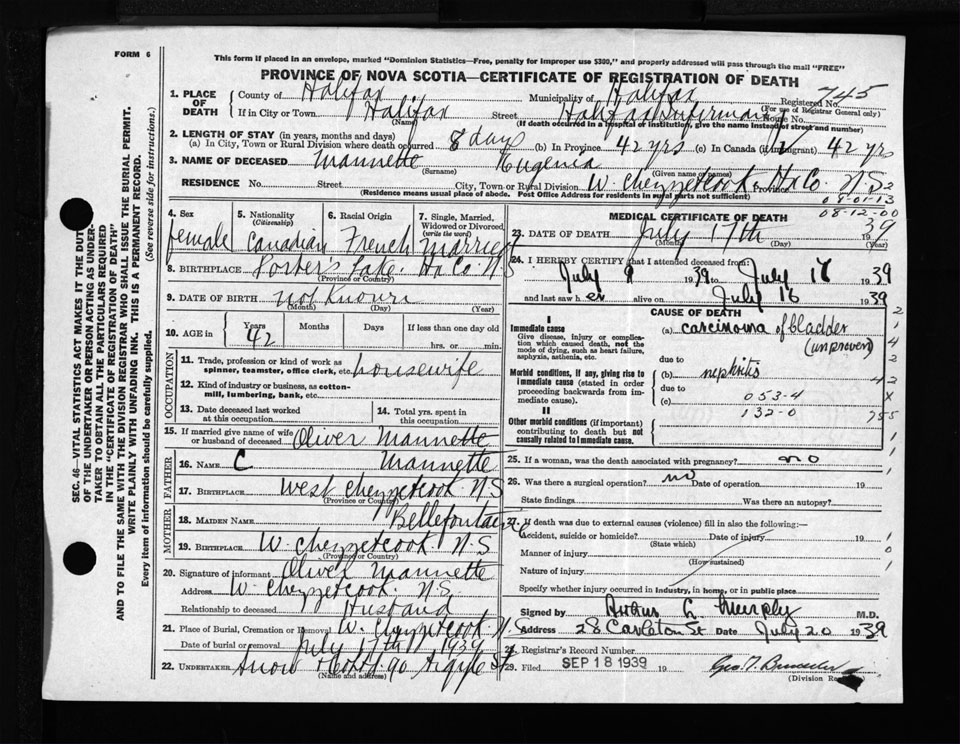 FORM 6
This form if placed in an envelope, marked "Dominion Statistics—Free, penalty for improper use $300," and properly addressed will pass through the mail "FREE"
PROVINCE OF NOVA SCOTIA—CERTIFICATE OF REGISTRATION OF DEATH
SEC. 46—VITAL STATISTICS ACT MAKES IT THE DUTY
OF THE UNDERTAKER OR PERSON ACTING AS UNDER-
TAKER TO OBTAIN ALL THE PARTICULARS REQUIRED
IN THE "CERTIFICATE OF REGISTRATION OF DEATH"
AND TO FILE THE SAME WITH THE DIVISION REGISTRAR WHO SHALL ISSUE THE BURIAL PERMIT.
WRITE PLAINLY WITH UNFADING INK. THIS IS A PERMANENT RECORD.
Every item of information should be carefully supplied. (See reverse side for instructions.)
1. PLACE OF DEATH County of Halifax Municipality of Halifax Registered No. 745
(For use of Registrar General only)
If in City or Town Halifax Street Halifax Infirmary House No.
(Name) (If death occurred in a hospital or institution, give the name instead of street and number)
2. LENGTH OF STAY (in years, months and days)
(a) In City, Town or Rural Division where death occurred 8 days (b) In Province 42 yrs (c) In Canada (if immigrant) 42 yrs
3. NAME OF DECEASED Mannette Eugenia
(Surname) (Given name or names)
RESIDENCE No. Street City, Town or Rural Division W Chezzetcook Province Hx Co. N.S.
(Residence means usual place of abode. Post Office Address for residents in rural parts not sufficient)
08-12-00
4. Sex
female
5. Nationality
(Citizenship)
Canadian
6. Racial Origin
French
7. Single, Married, Widowed or Divorced
(write the word)
Married
8. BIRTHPLACE Porter's Lake. Hx Co. N.S
(Province or Country)
9. DATE OF BIRTH not known
(Month) (Day) (Year)
10. AGE in Years Months Days If less than one day old
42 hrs. or min.
OCCUPATION
11. Trade, profession or kind of work as
spinner, teamster, office clerk, etc. housewife
12. Kind of industry or business, as cotton-
mill, lumbering, bank, etc.
13. Date deceased last worked
at this occupation
14. Total yrs. spent in
this occupation
15. If married give name of wife
or husband of deceased Oliver Mannette
FATHER
16. NAME C Mannette
17. BIRTHPLACE West Chezzetcook. N.S
(Province or Country)
MOTHER
18. MAIDEN NAME Bellefontaine
19. BIRTHPLACE W. Chezzetcook N.S
(Province or Country)
20. Signature of informant Oliver Mannette
Address W. Chezzetcook. N.S.
Relationship to deceased Husband
21. Place of Burial, Cremation or Removal W. Chezzetcook N.S
Date of burial or removal July 1939
22. UNDERTAKER Snow & Co Ltd 90 Argyle St
(Name and address)
MEDICAL CERTIFICATE OF DEATH
23. DATE OF DEATH July 17th 39
(Month) (Day) (Year)
24. I HEREBY CERTIFY that I attended deceased from:
July 9 1939 to July 17 1939
and last saw her alive on July 16 1939
CAUSE OF DEATH
I
Immediate cause
Give disease, injury or complica-
tion which caused death, not the
mode of dying, such as heart failure,
asphyxia, asthenia, etc.
(a) carcinoma of bladder
(unproven)
due to
Morbid conditions, if any, giving rise to
immediate cause (stated in order
proceeding backwards from im-
mediate cause).
(b) nephritis
due to
(c) 053-4
132-0
II
Other morbid conditions (if important)
contributing to death but not
causally related to immediate cause.
25. If a woman, was the death associated with pregnancy? no
26. Was there a surgical operation? no Date of operation 19
State findings Was there an autopsy?
27. If death was due to external causes (violence) fill in also the following:—
Accident, suicide or homicide? Date of injury 19
(State which)
Manner of injury
(How sustained)
Nature of injury
Specify whether injury occurred in industry, in home, or in public place
Signed by Arthur L Murphy M.D.
Address 28 Carleton St Date July 20 1939
28. Registrar's Record Number
29. Filed SEP 18 1939 19
(Division Registrar)